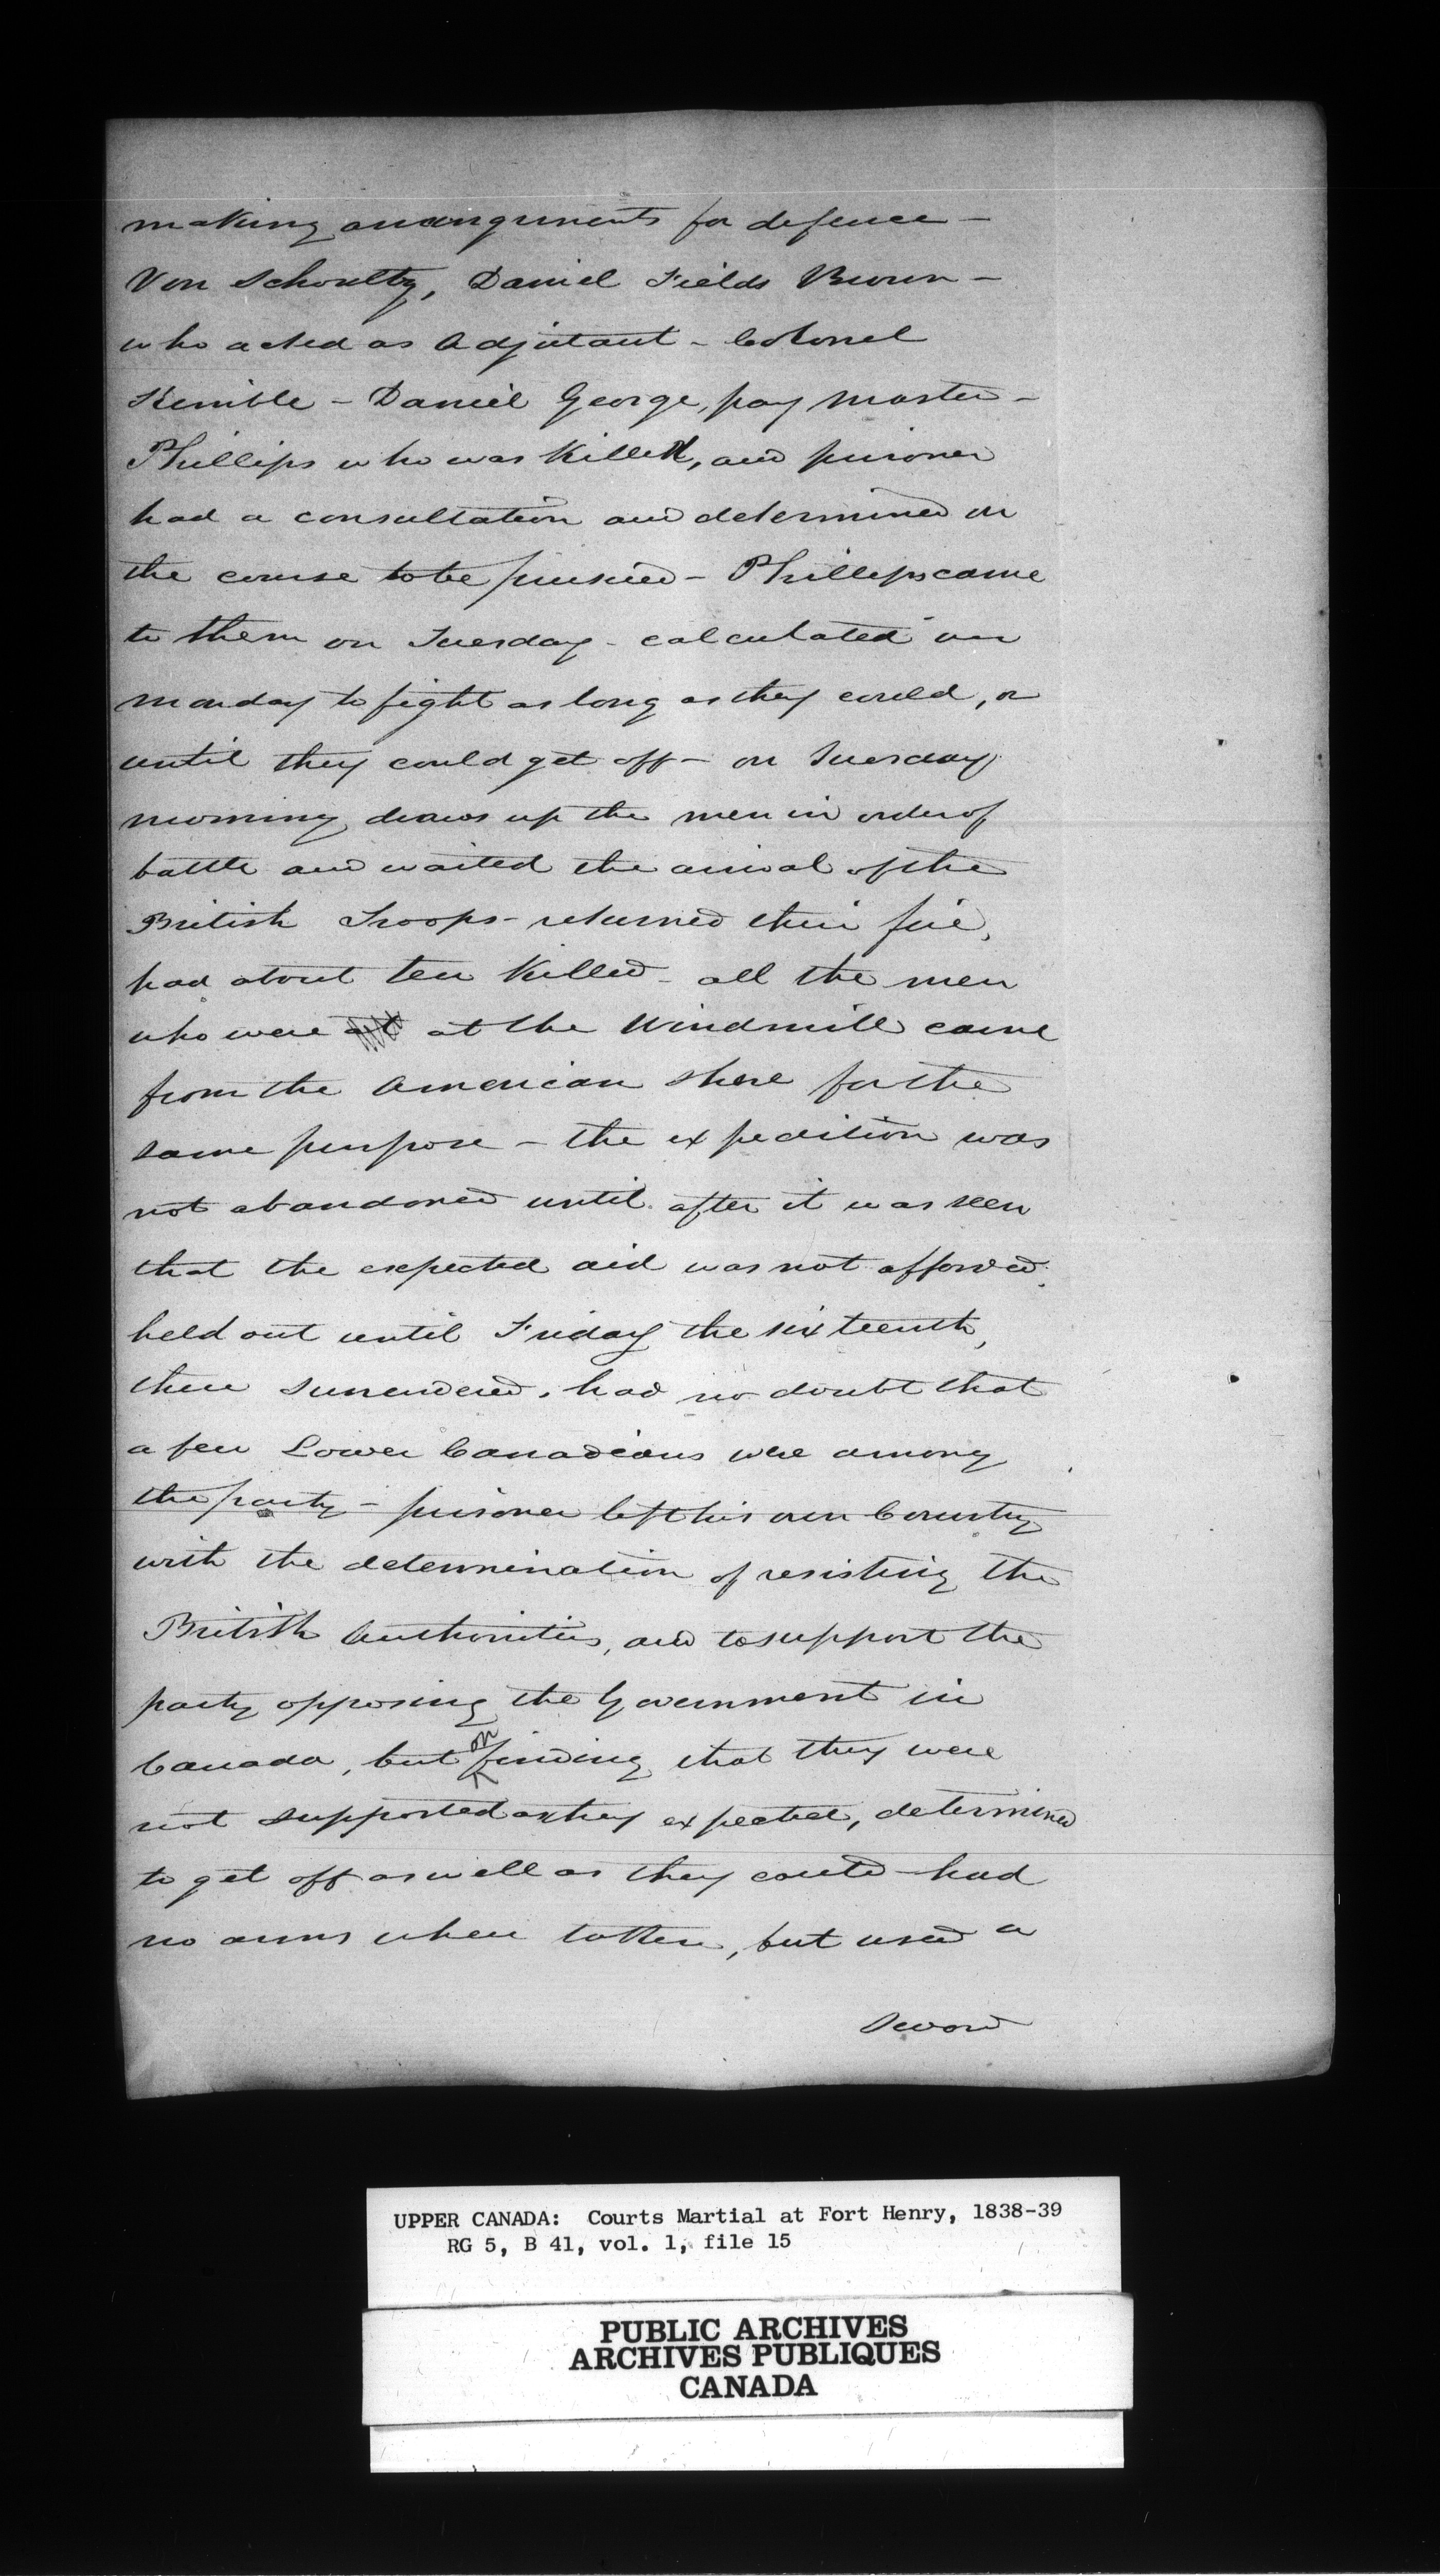 making arrangements for defence -
Von Schoultz, Daniel Fields Brown -
who acted as Adjutant - Colonel
Kimble - Daniel George, pay master -
Phillips who was killed, and prisoner
had a consultation and determined on
the course to be pursued - Phillips came
to them on Tuesday - calculated on
monday to fight as long as they could, or
until they could get off - on Tuesday
morning draws up the men in order of
battle and waited the arrival of the
British Troops - returned their fire,
had about ten killed - all the men
who were at the Windmill came
from the American shore for the
same purpose - the expedition was
not abandoned until after it was seen
that the expected aid was not afforded.
held out until Friday the sixteenth,
then surrendered. had no doubt that
a few Lower Canadians were among
the party - prisoner left his own Country
with the determination of resisting the
British Authorities, and to support the
party opposing the Government in
Canada, but on finding that they were
not supported as they expected, determined
to get off as well as they could - had
no arms when taken, but used a
Sword
UPPER CANADA: Courts Martial at Fort Henry, 1838-39
RG 5, B 41, vol. 1, file 15
PUBLIC ARCHIVES
ARCHIVES PUBLIQUES
CANADA